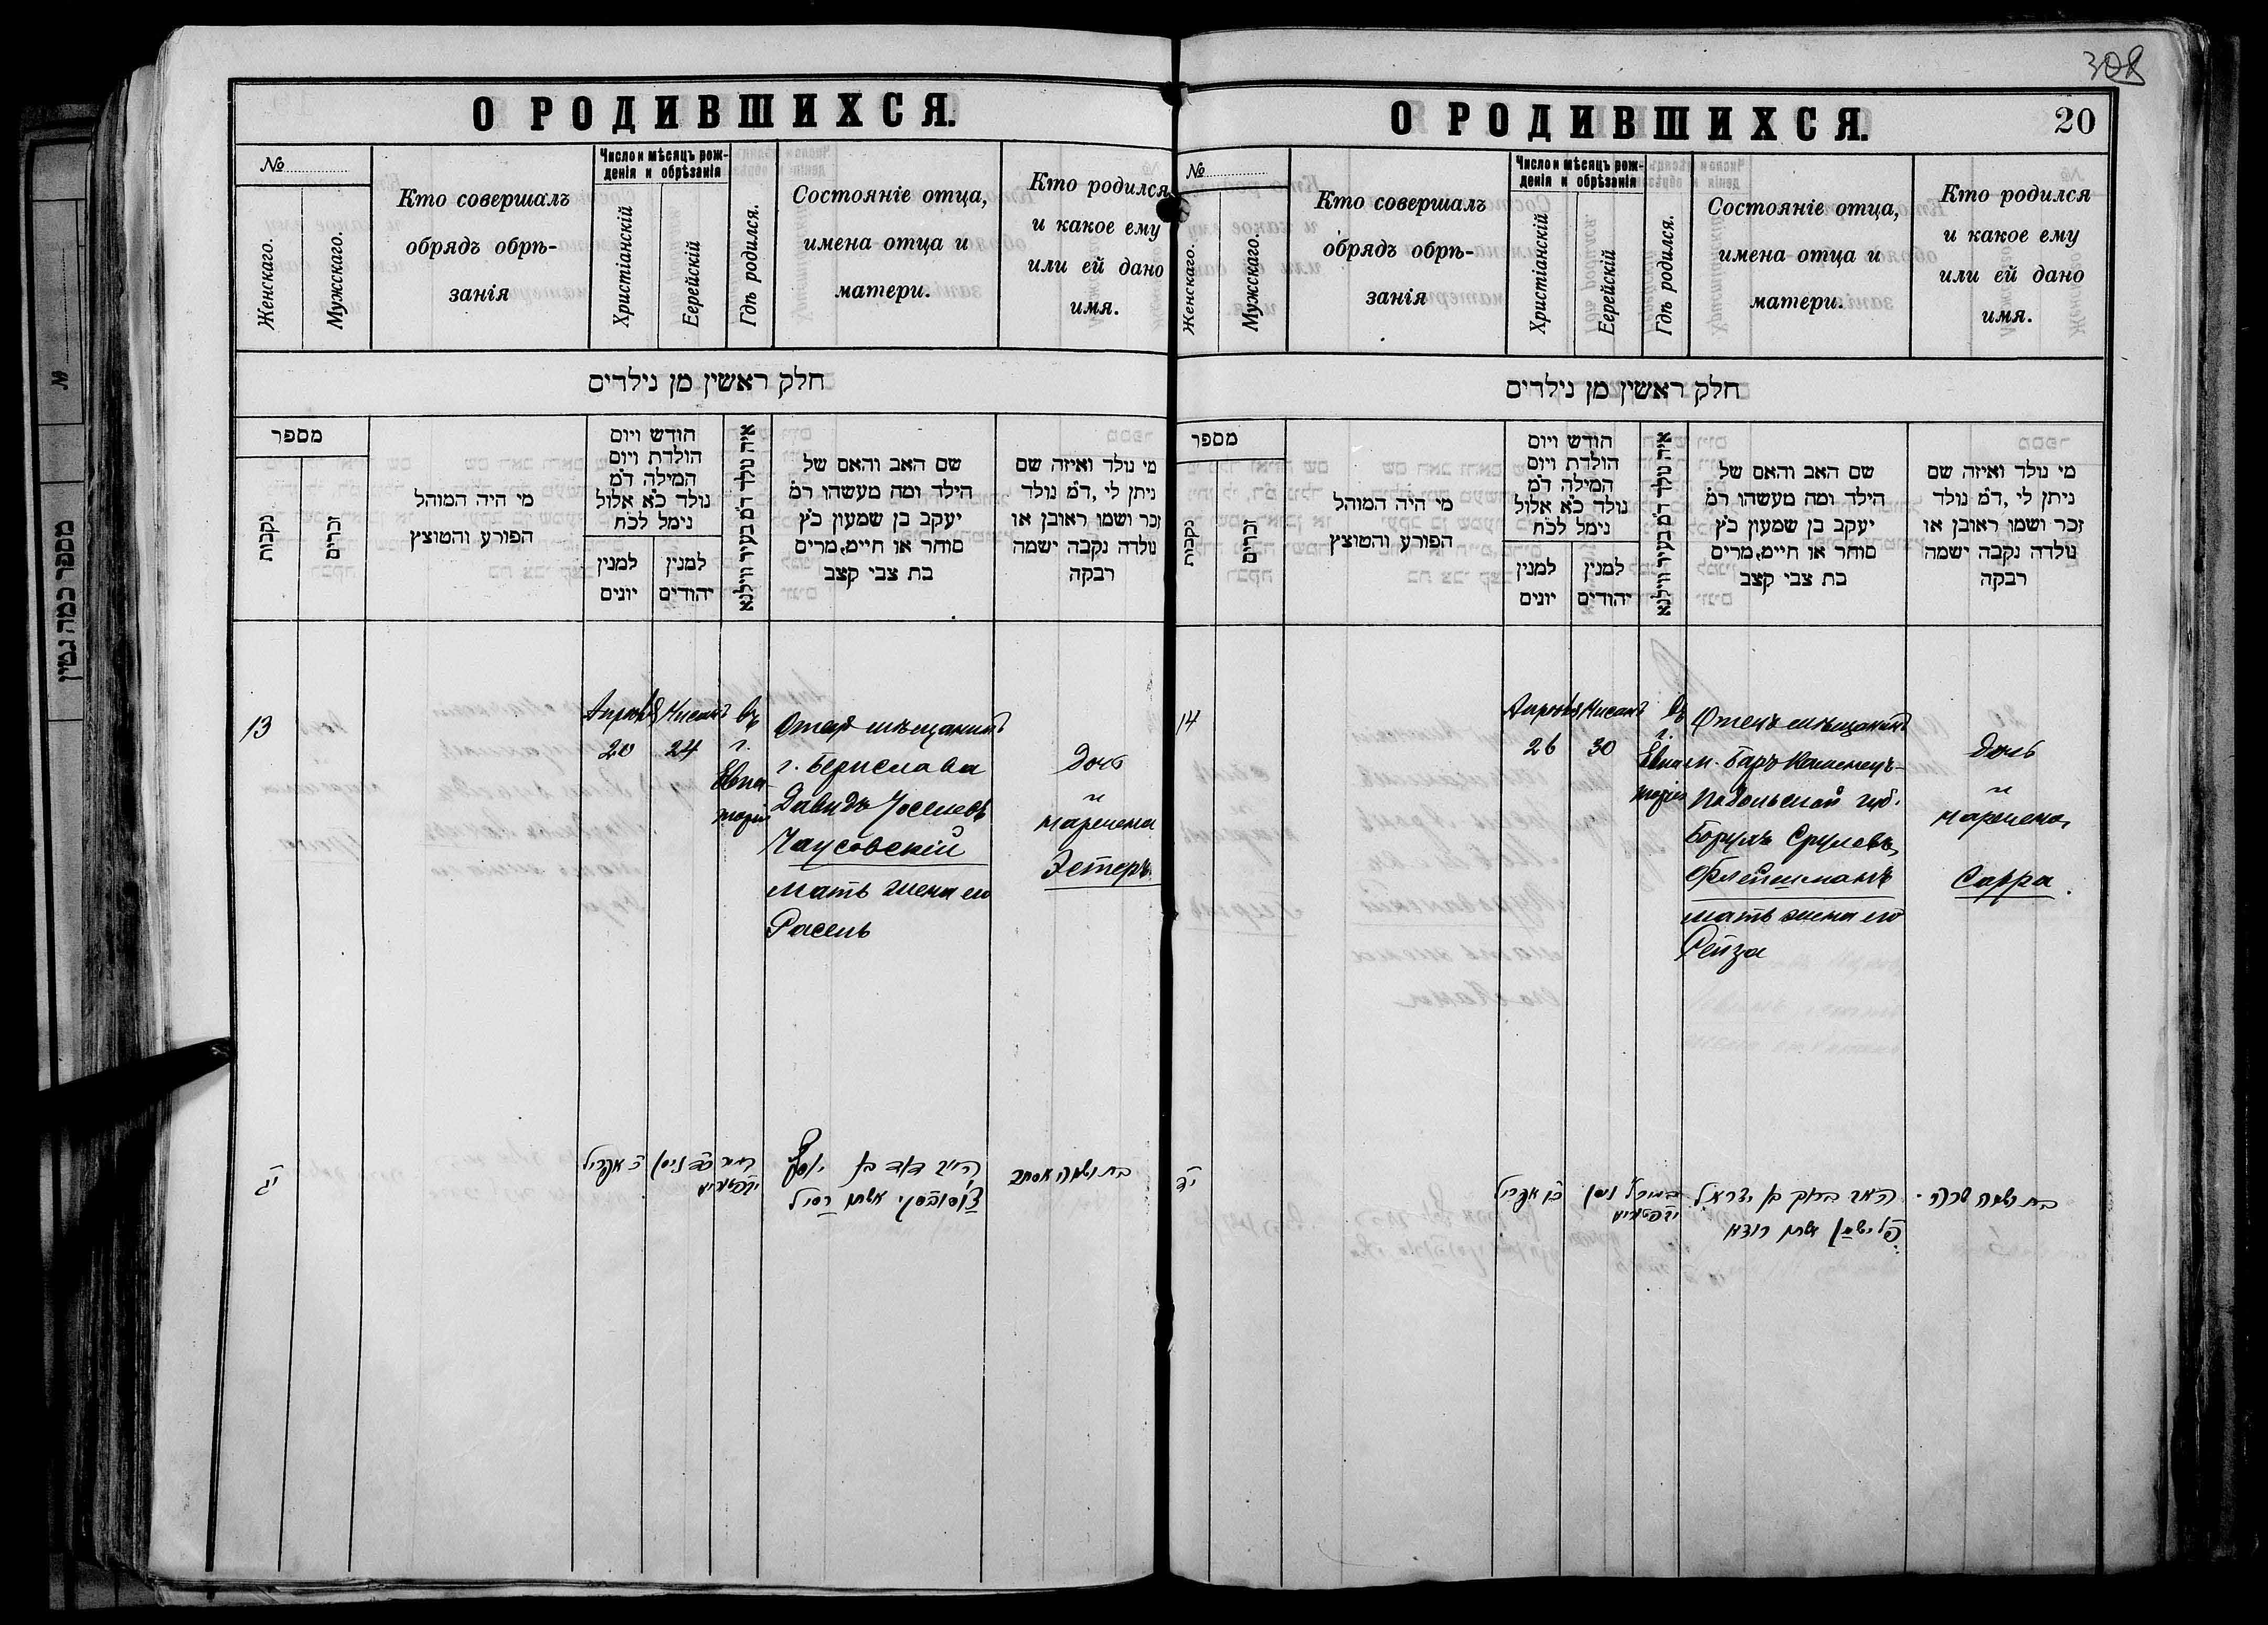 308
О РОДИВШИХСЯ.
№
Женскаго.
Мужскаго.
Кто совершалъ
обрядъ обрѣ-
занія
Число и мѣсяцъ рож-
денія и обрѣзанія
Христіанскій
Еерейскій
Гдѣ родился.
Состояніе отца,
имена отца и
матери.
Кто родился
и какое ему
или ей дано
имя.
חלק ראשין מן נילדים
מספר
נקבות
זכרים
מי היה המוהל
הפורע והטוצץ
חודש ויום
הולדת ויום
המילה ד״מ
נולד כ״א אלול
נימל לכ״ח
למנין
יונים
למנין
יהודים
איה נולד ד״מ בעיר ווילנא
שם האב והאם של
הילד ומה מעשהו ד״מ
יעקב בן שמעון כ״ץ
סוחר או חיים, מרים
בת צבי קצב
מי נולד ואיזה שם
ניתן לי, ד״מ נולד
זכר ושמו ראובן או
נולדה נקבה ישמה
רבקה
13
Апрѣля
20
Нисанъ
24
въ
г.
Евпа-
торіи
Отецъ мѣщанинъ
г. Берислава
Давидъ Іоселевъ
Чаусовскій
мать жена его
Расель
Дочь
и
наречена
Эстеръ
י״ג
כ׳ אפריל
כ״ד ניסן
בעיר
יעפטריע
האב דוד בן יוסף
צ׳וסובסקי אשתו רסיל
בת ושמה אסתר
О РОДИВШИХСЯ.
20
№
Женскаго.
Мужскаго.
Кто совершалъ
обрядъ обрѣ-
занія
Число и мѣсяцъ рож-
денія и обрѣзанія
Христіанскій
Еерейскій
Гдѣ родился.
Состояніе отца,
имена отца и
матери.
Кто родился
и какое ему
или ей дано
имя.
חלק ראשין מן נילדים
מספר
נקבות
זכרים
מי היה המוהל
הפורע והטוצץ
חודש ויום
הולדת ויום
המילה ד״מ
נולד כ״א אלול
נימל לכ״ח
למנין
יונים
למנין
יהודים
איה נולד ד״מ בעיר ווילנא
שם האב והאם של
הילד ומה מעשהו ד״מ
יעקב בן שמעון כ״ץ
סוחר או חיים, מרים
בת צבי קצב
מי נולד ואיזה שם
ניתן לי, ד״מ נולד
זכר ושמו ראובן או
נולדה נקבה ישמה
רבקה
14
Апрѣля
26
Нисанъ
30
въ
г.
Евпа
торіи
Отецъ мѣщанинъ
м. Баръ Каменецъ-
Подольской губ.
Борухъ Срулевъ
Флейшманъ
мать жена его
Рейза
Дочь
и
наречена
Сарра.
י״ד
כ״ו אפריל
ל׳ ניסן
בעיר
יעפטריע
האב ברוך בן ישראל
פליישמן אשתו רוזא
בת ושמה שרה